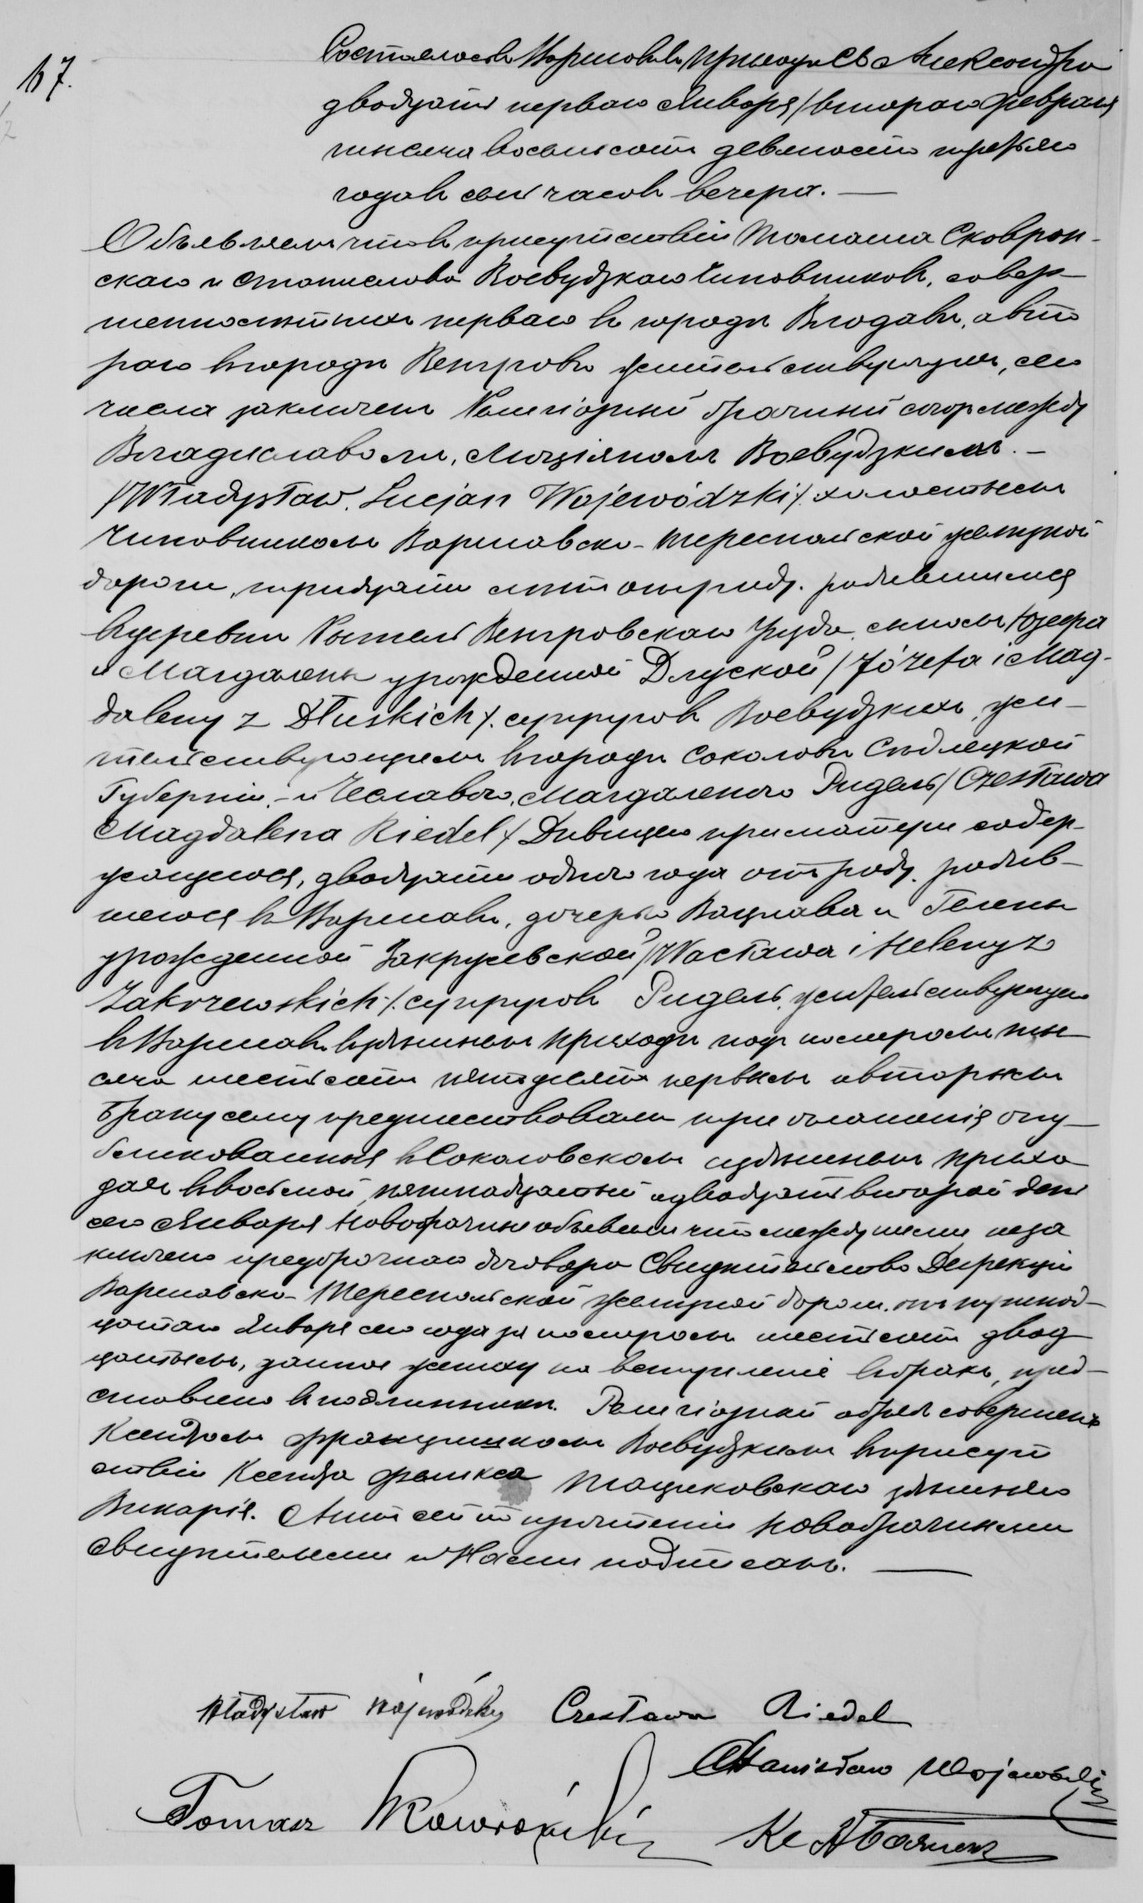 67.
Состоялось в Варшаве в приходе Св. Александра
двадцать перваго Января / втораго Февраля
тысяча восемьсот девяносто третьяго
года в семь часов вечера. —
Объявляем что в присутствии Томаша Сковрон-
скаго и Станислава Воевудзкаго чиновников, совер-
шеннолетних перваго в городе Влодаве, а вто
раго в городе Венгрове жительствующих, сего
числа заключен Религиозный брачный союз между
Владиславом, Люцiяном Воевудзким. —
/Władysław, Lucjan Wojewódzki/. холостым
чиновником Варшавско-Тереспольской железной
дороги, тридцати лет от роду. родившимся
в деревне Венгровскаго Уезда, сыном Юзефа
и Магдалены урожденной Длуской /Józefa i Mag-
daleny z Dłuskich/. супругов Воевудзких, жи-
тельствующем в городе Соколове Седлецкой
Губернiи, — и Чеславою, Магдаленою Ридель /Czesława
Magdalena Riedel/ Девицею при матери содер-
жащеюся, двадцати одного года от роду, родив-
шеюся в Варшаве, дочерью Вацлава и Гелены
урожденной Закржевской /Wacława i Heleny z
Zakrzewskich/. супругов Ридель, жительствующею
в Варшаве в здешнем приходе под номером ты-
сяча шестьсот пятьдесят первым а вторым
Браку сему предшествовали три оглашенiя опу-
бликованныя в Соколовском и здешнем прихо
дах в восьмой, пятнадцатый и двадцать второй день
сего Января Новобрачные объявили что между ними не за
ключено предбрачнаго договора Свидетельство Дирекцiи
Варшавско-Тереспольской железной дороги, от тринад-
цатаго Января сего года за номером шестьсот двад
цатым, данное жениху на вступленiе в брак, пред-
ставлено в подлиннике. Религиозный обряд совершен
Ксендзом Францишком Воевудзким в присут
ствiи Ксендза Феликса здешняго
Викарiя. Акт сей по прочтенiи новобрачными
свидетелями и Нами подписан. —
Władysław Wojewódzki Czesława Riedel
Stanisław Wojewódzki
Tomasz Skowroński